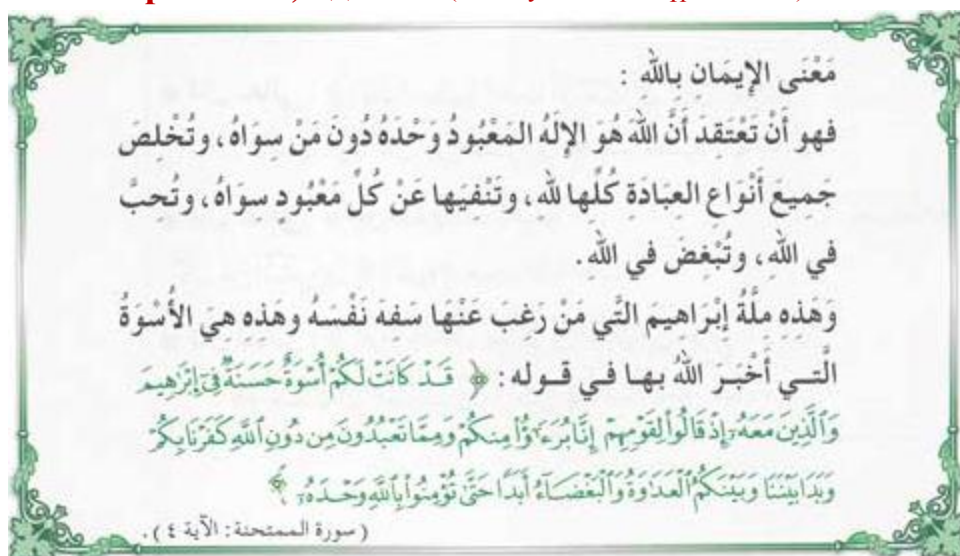 مَعْنَى الإِيمَان بِاللهِ :
فهو أَنْ تَعْتَقِدَ أَنَّ اللهَ هُوَ الإِلَهُ المَعْبُودُ وَحْدَهُ دُونَ مَنْ سِوَاهُ، وتُخْلِصَ
جَمِيعَ أَنْوَاعِ العِبَادَةِ كُلَّها للهِ، وتَنْفِيَها عَنْ كُلِّ مَعْبُودٍ سِوَاهُ، وتُحِبَّ
في اللهِ، وتُبْغِضَ في اللهِ.
وَهَذِهِ مِلَّةُ إِبْرَاهِيمَ التَّي مَنْ رَغِبَ عَنْهَا سَفِهَ نَفْسَهُ وهَذِهِ هِيَ الأُسْوَةُ
الَّتي أَخْبَرَ اللهُ بها في قوله: ﴿ قَدْ كَانَتْ لَكُمْ أُسْوَةٌ حَسَنَةٌ فِىٓ إِبْرَٰهِيمَ
وَٱلَّذِينَ مَعَهُۥٓ إِذْ قَالُوا۟ لِقَوْمِهِمْ إِنَّا بُرَءَٰٓؤُا۟ مِنكُمْ وَمِمَّا تَعْبُدُونَ مِن دُونِ ٱللَّهِ كَفَرْنَا بِكُمْ
وَبَدَا بَيْنَنَا وَبَيْنَكُمُ ٱلْعَدَٰوَةُ وَٱلْبَغْضَآءُ أَبَدًا حَتَّىٰ تُؤْمِنُوا۟ بِٱللَّهِ وَحْدَهُۥٓ ﴾
(سورة الممتحنة: الآية ٤).